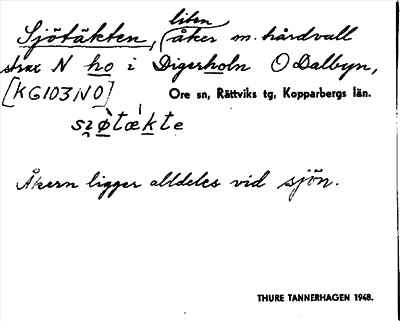 Sjötäkten, liten åker m. hårdvall
strax N ho i Digerholn O Dalbyn,
[KG103NO] Ore sn, Rättviks tg, Kopparbergs län.
Åkern ligger alldeles vid sjön.
THURE TANNERHAGEN 1948.